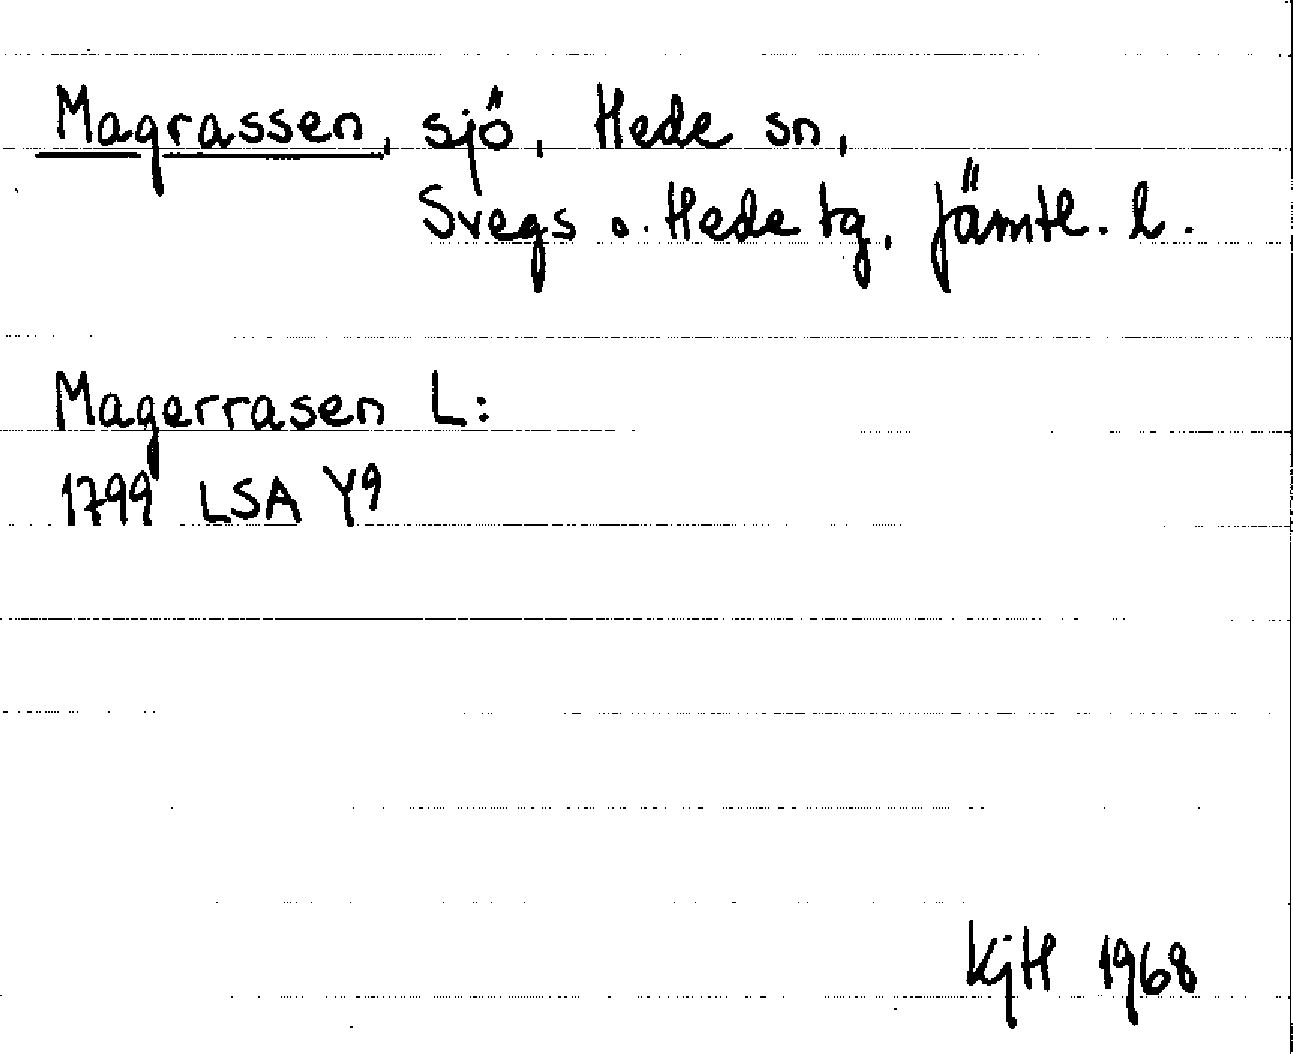 Magrassen, sjö, Hede sn,
Svegs o. Hede tg, Jämtl. l.
Magerrasen L:
1799 LSA Y9
KjH 1968